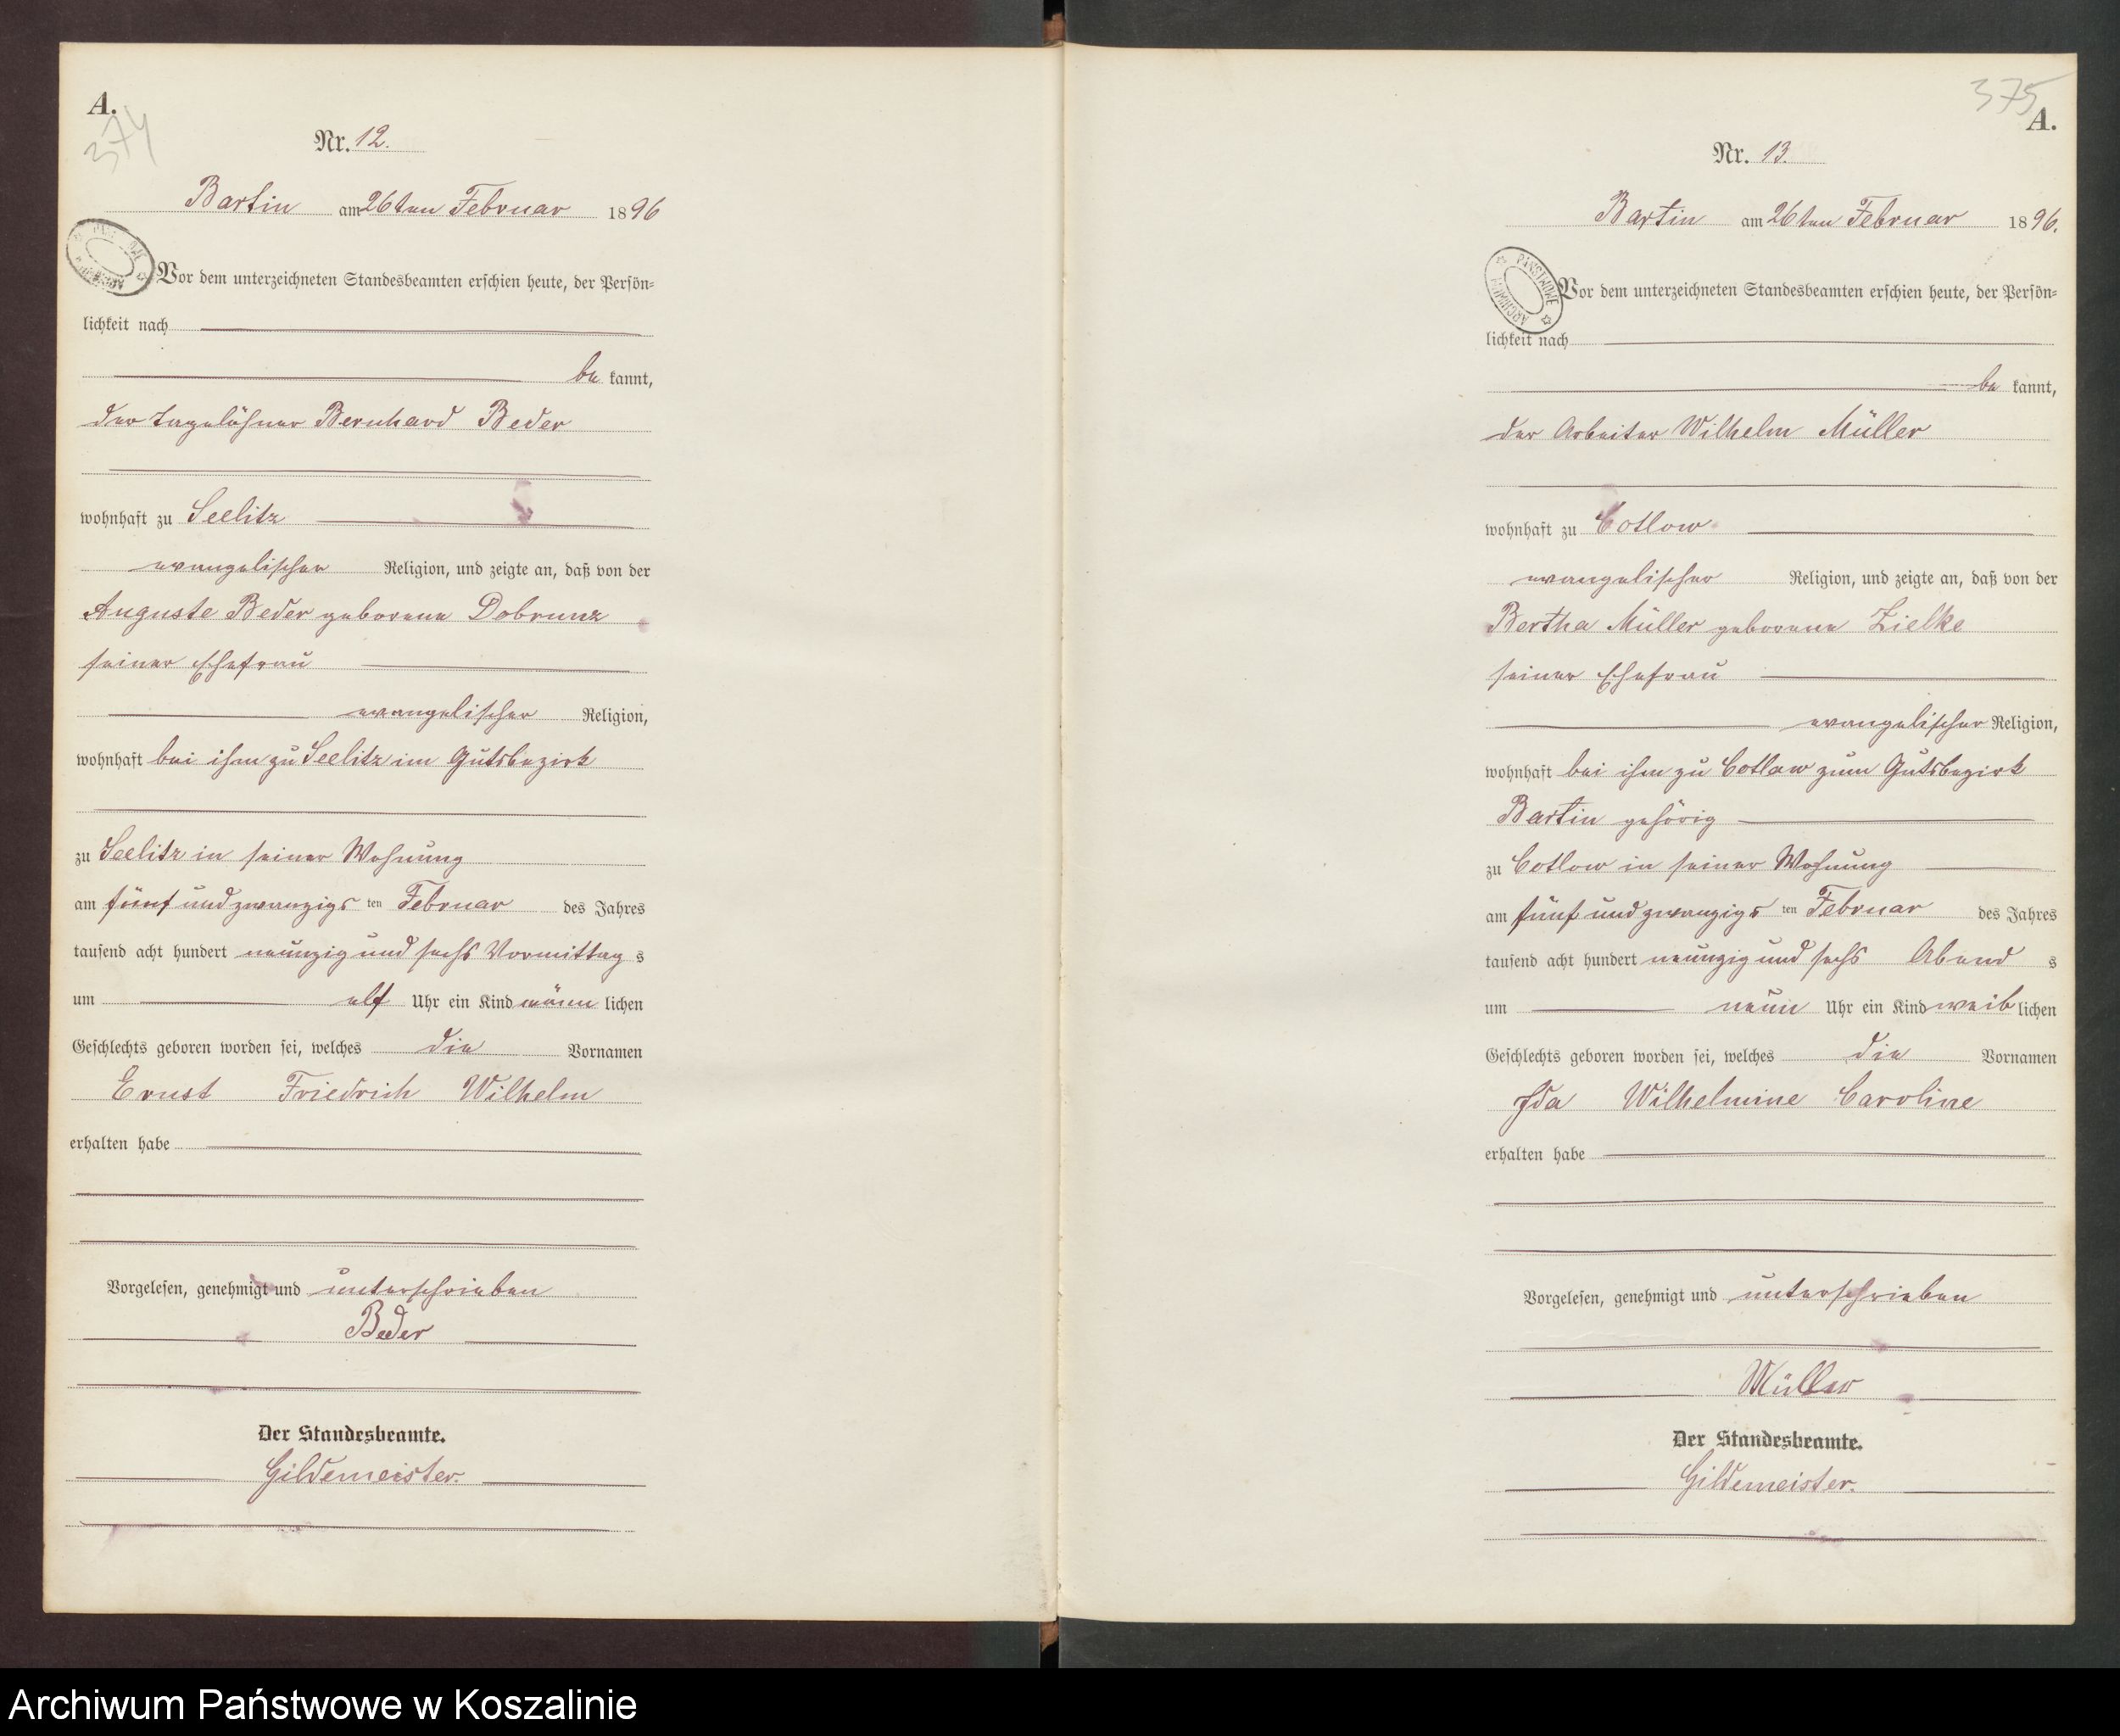 A.
374
Nr. 12.
Bartin am 26ten Februar 1896
Vor dem unterzeichneten Standesbeamten erschien heute, der Persön=
lichkeit nach
be kannt,
der Tagelöhner Bernhard Beder
wohnhaft zu Seelitz
evangelischer Religion, und zeigte an, daß von der
Auguste Beder geborene Dobrunz
seiner Ehefrau
evangelischer Religion,
wohnhaft bei ihm zu Seelitz im Gutsbezirk
zu Seelitz in seiner Wohnung
am fünf und zwanzigs ten Februar des Jahres
tausend acht hundert neunzig und sechs Vormittag s
um elf Uhr ein Kind männ lichen
Geschlechts geboren worden sei, welches die Vornamen
Ernst Friedrich Wilhelm
erhalten habe
Vorgelesen, genehmigt und unterschrieben
Beder
Der Standesbeamte.
Gildemeister.
375
A.
Nr. 13.
Bartin am 26ten Februar 1896.
PAŃSTWOWE ARCHIWUM
Vor dem unterzeichneten Standesbeamten erschien heute, der Persön=
lichkeit nach
be kannt,
der Arbeiter Wilhelm Müller
wohnhaft zu Cotlow
evangelischer Religion, und zeigte an, daß von der
Bertha Müller geborene Zielke
seiner Ehefrau
evangelischer Religion,
wohnhaft bei ihm zu Cotlow zum Gutsbezirk
Bartin gehörig
zu Cotlow in seiner Wohnung
am fünf und zwanzigs ten Februar des Jahres
tausend acht hundert neunzig und sechs Abend s
um neun Uhr ein Kind weib lichen
Geschlechts geboren worden sei, welches die Vornamen
Ida Wilhelmine Caroline
erhalten habe
Vorgelesen, genehmigt und unterschrieben
Müller
Der Standesbeamte.
Gildemeister.
Archiwum Państwowe w Koszalinie